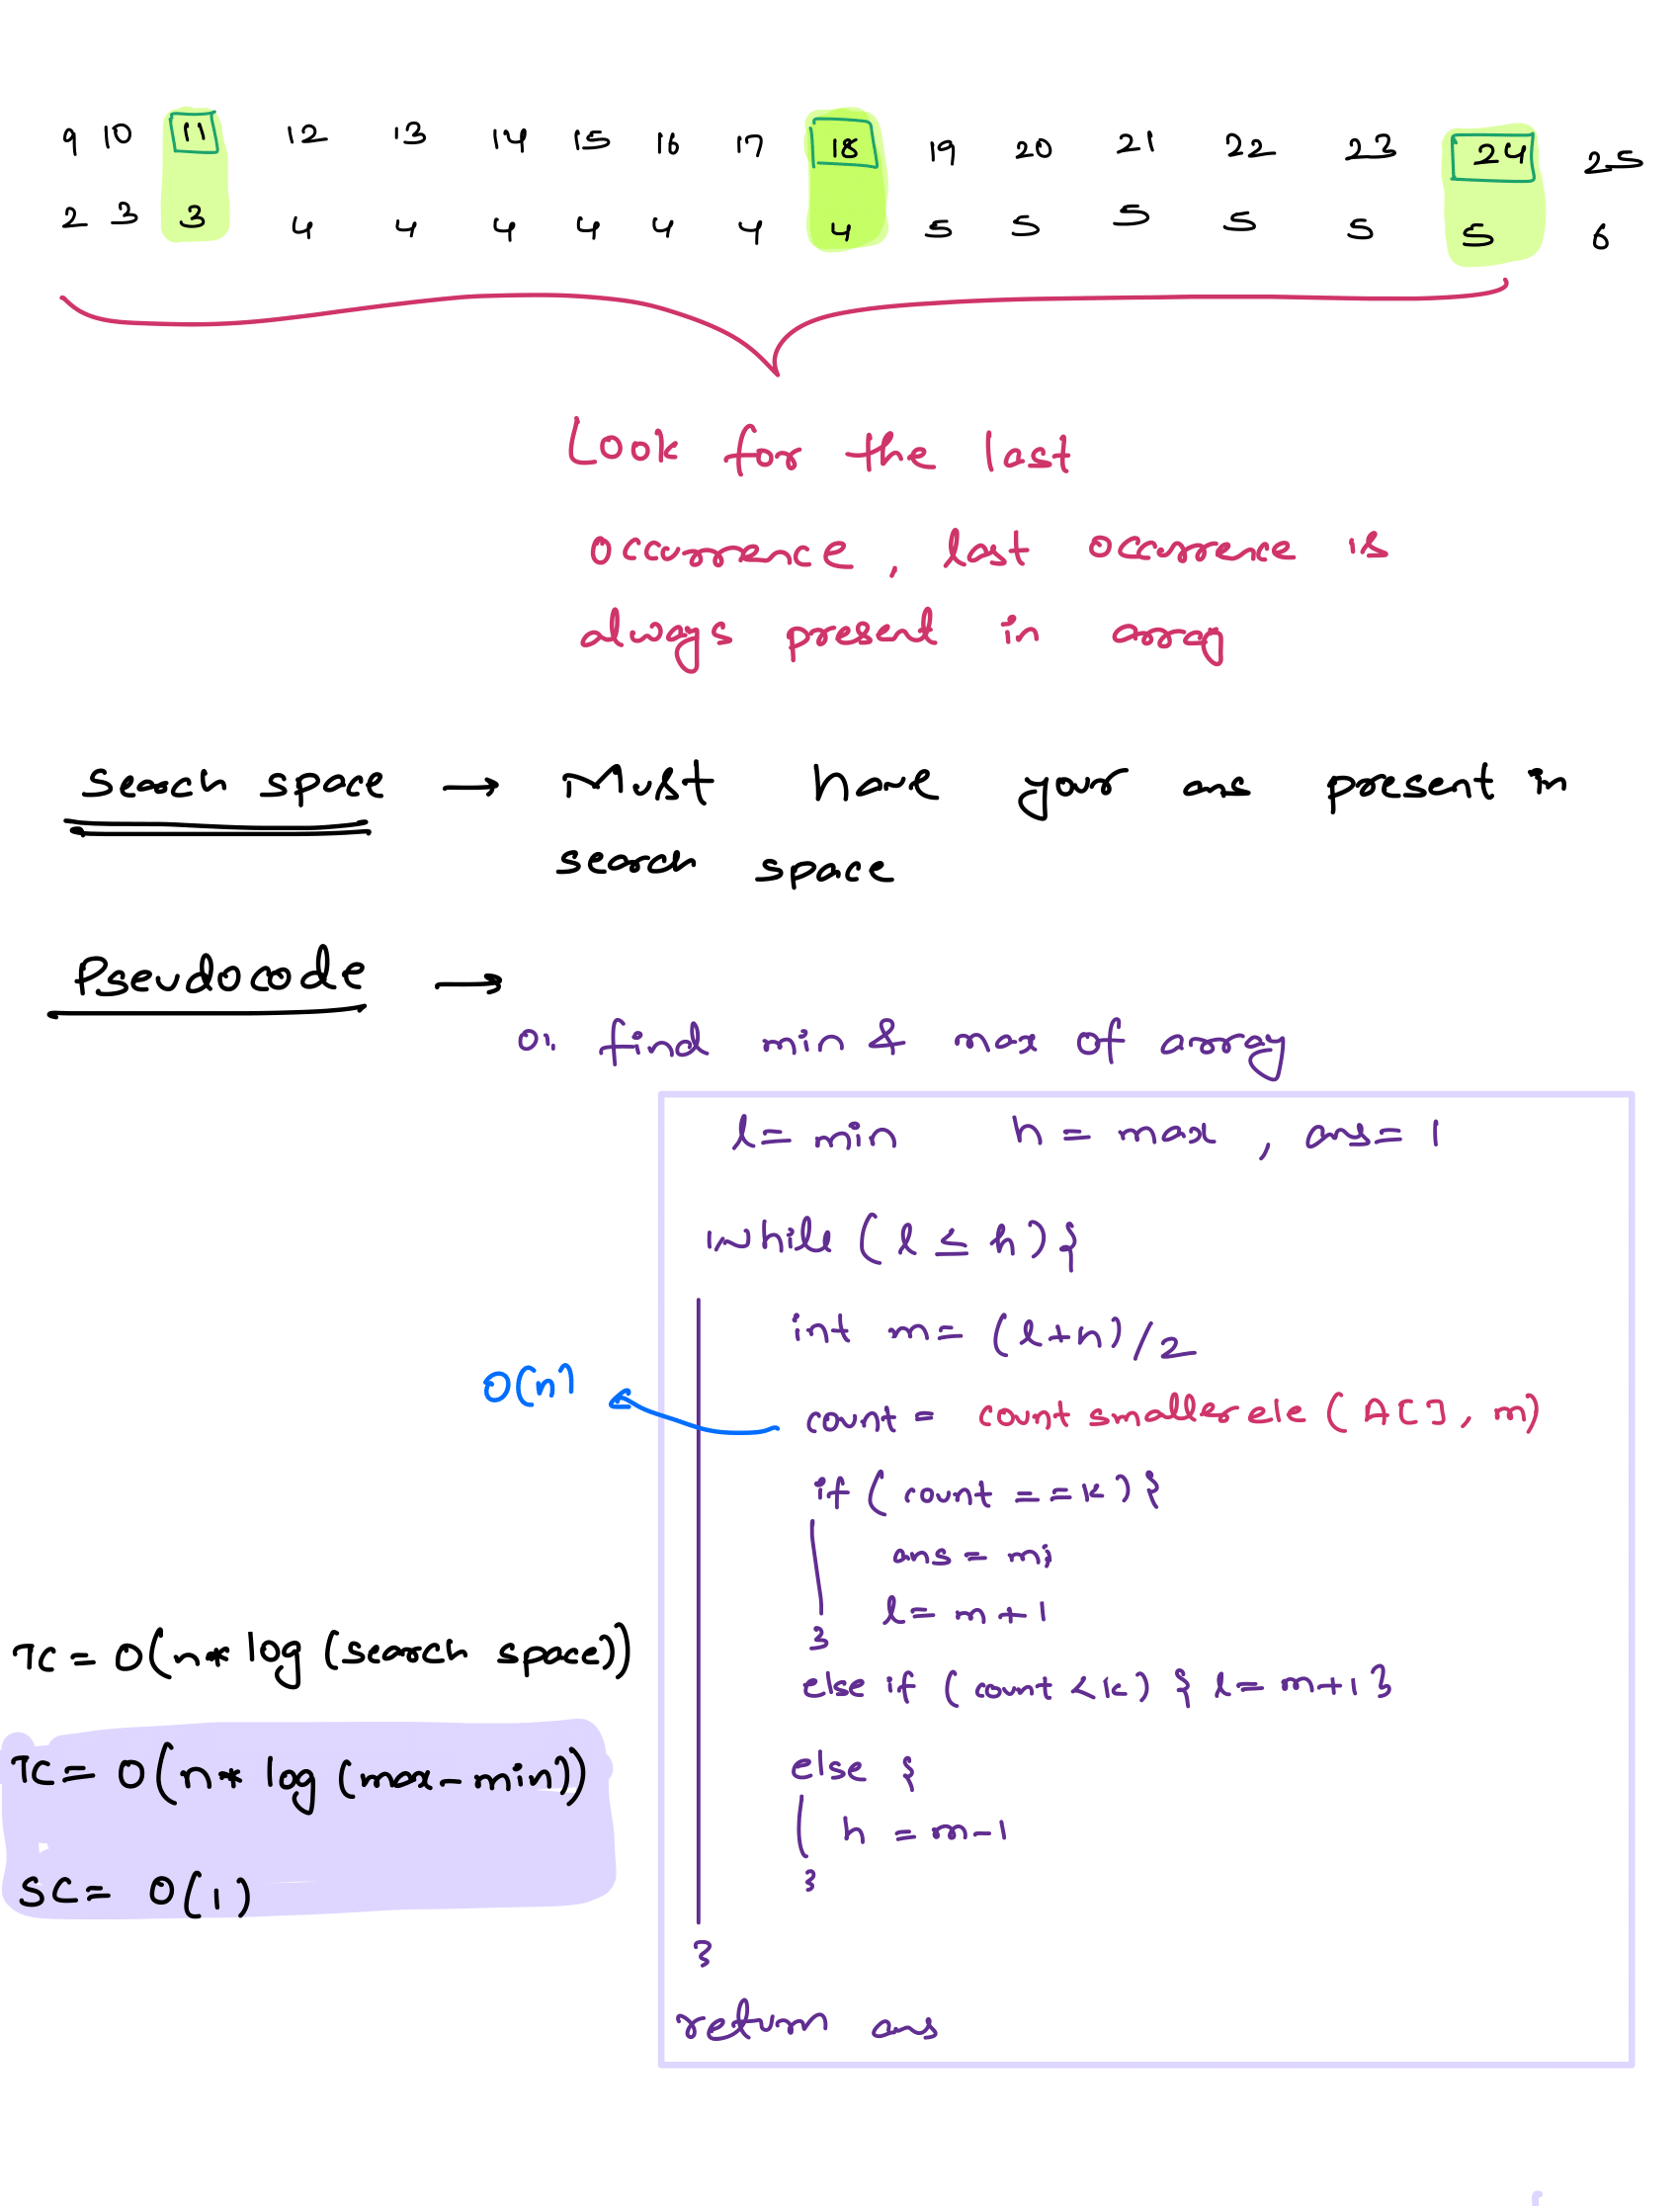 9 10 11 12 13 14 15 16 17 18 19 20 21 22 23 24 25
2 3 3 4 4 4 4 4 4 4 5 5 5 5 5 5 6
Look for the last
occurrence, last occurrence is
always present in array
Search space → Must have your ans present in
search space
Pseudocode →
01. find min & max of array
l = min h = max , ans = 1
while ( l ≤ h ) {
int m = (l+h)/2
O(n)
count = count smaller ele ( A[ ], m)
if ( count == k ) {
ans = m;
l = m + 1
}
TC = O(n* log (search space))
else if ( count < k ) { l = m+1 }
TC = O(n* log (max-min))
else {
h = m-1
}
SC = O(1)
}
return ans